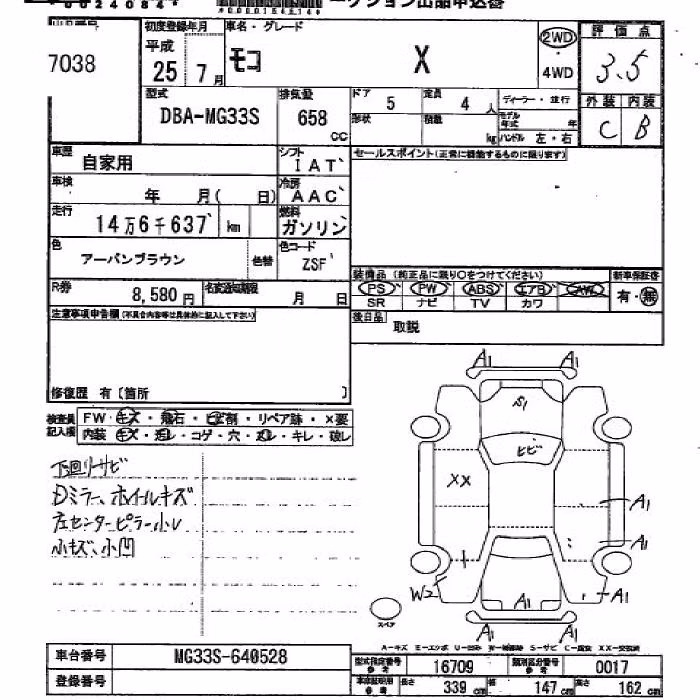 ークション出品申込書
7038
初度登録年月
平成
25 7月
車名・グレード
モコ X
2WD
4WD
評価点
3.5
外装 内装
C B
型式
DBA-MG33S
排気量
658
CC
ドア 5
定員 4 人
形状
積載 kg
ディーラー・並行
モデル年式 年
ハンドル 左・右
車歴
自家用
シフト
IAT
車検
年 月( 日)
冷房
AAC
走行
14万6千637 km
燃料
ガソリン
色
アーバンブラウン
色替
色コード
ZSF
R券
8,580円
名変通知期限
月 日
セールスポイント(正常に機能するものに限ります)
装備品 (純正品に限り○をつけてください)
新車保証書
PS PW ABS エアB AW
有・無
SR ナビ TV カワ
後日品
取説
注意事項申告欄(不具合内容等は具体的に記入して下さい)
修復歴 有〔箇所 〕
検査員
記入欄
FW・キズ・飛石・ヒビ割・リペア跡・×要
内装・キズ・汚レ・コゲ・穴・ヌレ・キレ・破レ
下回りサビ
Dミラー、ホイルキズ
左センターピラー小レ
小キズ、小凹
A1 A1
S1
ヒビ
XX
A1
A1
W2
A1
A1
A1 A1
スペア
A−キズ E−エクボ U−凹み W−補修跡 S−サビ C−腐食 XX−交換済
車台番号
MG33S-640528
登録番号
型式指定番号
参考
16709
類別区分番号
参考
0017
車庫証明用
参考
長さ 339 cm 幅 147 cm 高さ 162 cm